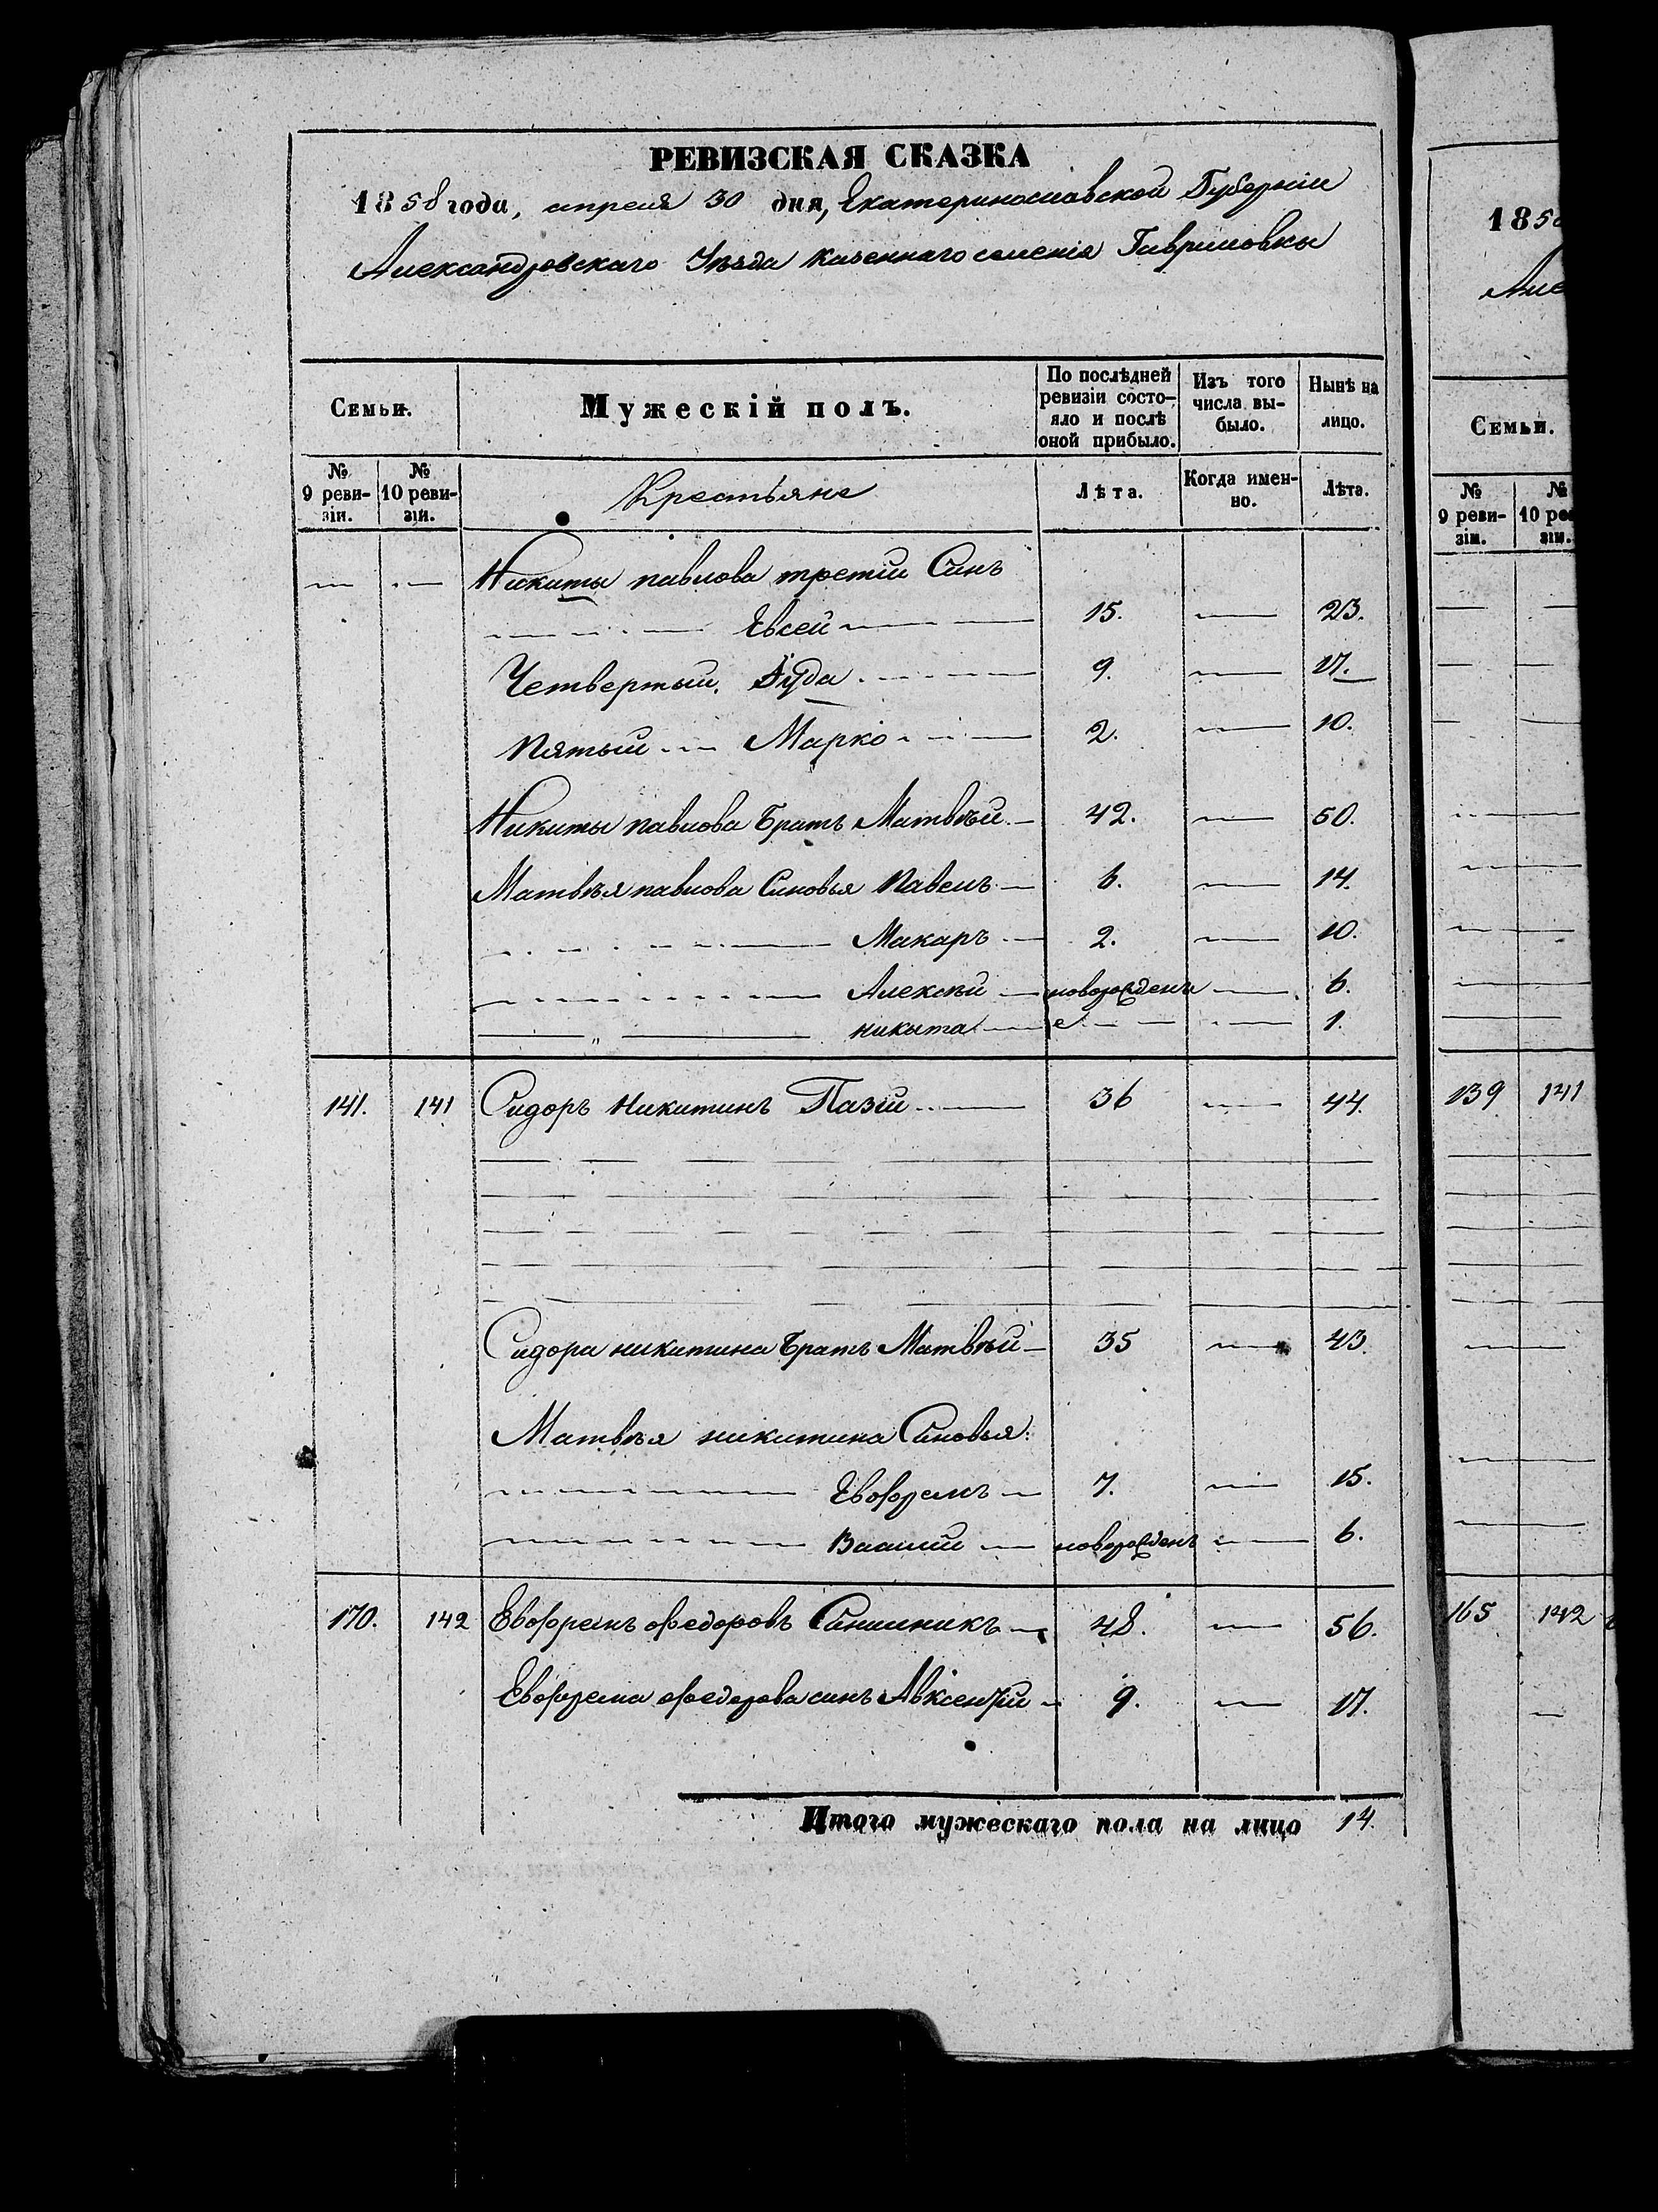 РЕВИЗСКАЯ СКАЗКА
1858 года, апреля 30 дня, Екатеринославской Губерніи
Александровскаго Уѣзда казеннаго селенія Гавриловки
Семьи. Мужескій полъ. По послѣдней ревизіи состояло и послѣ оной прибыло. Изъ того числа выбыло. Нынѣ на лицо.
№ 9 ревизіи. № 10 ревизіи. Крестьяне Лѣта. Когда именно. Лѣта.
Никиты павлова третій Синъ
Евсей 15. — 23.
Четвертый. Іуда 9. — 17.
Пятый Марко 2. — 10.
Никиты павлова Братъ Матвѣй 42. — 50.
Матвѣя павлова Синовья Павелъ 6. — 14.
Макаръ 2. — 10.
Алексѣй новорожденъ — 6.
никыта е — 1.
141. 141 Сидоръ Никитинъ Пазій 36 — 44.
Сидора никитина Братъ Матвѣй 35 — 43.
Матвѣя никитина Синовья:
Евфремъ 7. — 15.
новорожденъ — 6.
170. 142 Евфремъ федоровъ 48. — 56.
Евфрема федорова синъ Авксентій 9. — 17.
Итого мужескаго пола на лицо 14.
1858
Але
Семьи.
№ 9 ревизіи. № 10
139 141
165 142